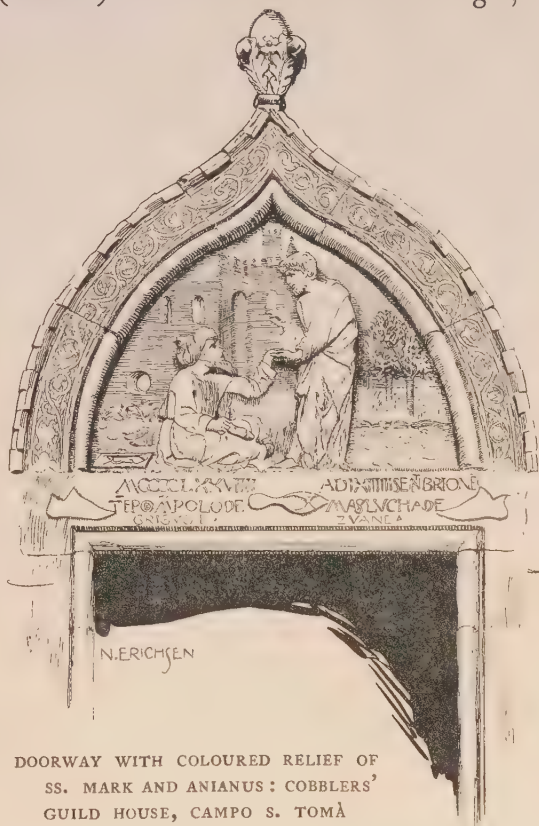 MCCCCLXXVIIII ADI XIIII SENBRIONE
TEPO MPOLO DE MAS LVCHA DE
ZVANE
N. ERICHSEN
DOORWAY WITH COLOURED RELIEF OF
SS. MARK AND ANIANUS: COBBLERS'
GUILD HOUSE, CAMPO S. TOMÀ